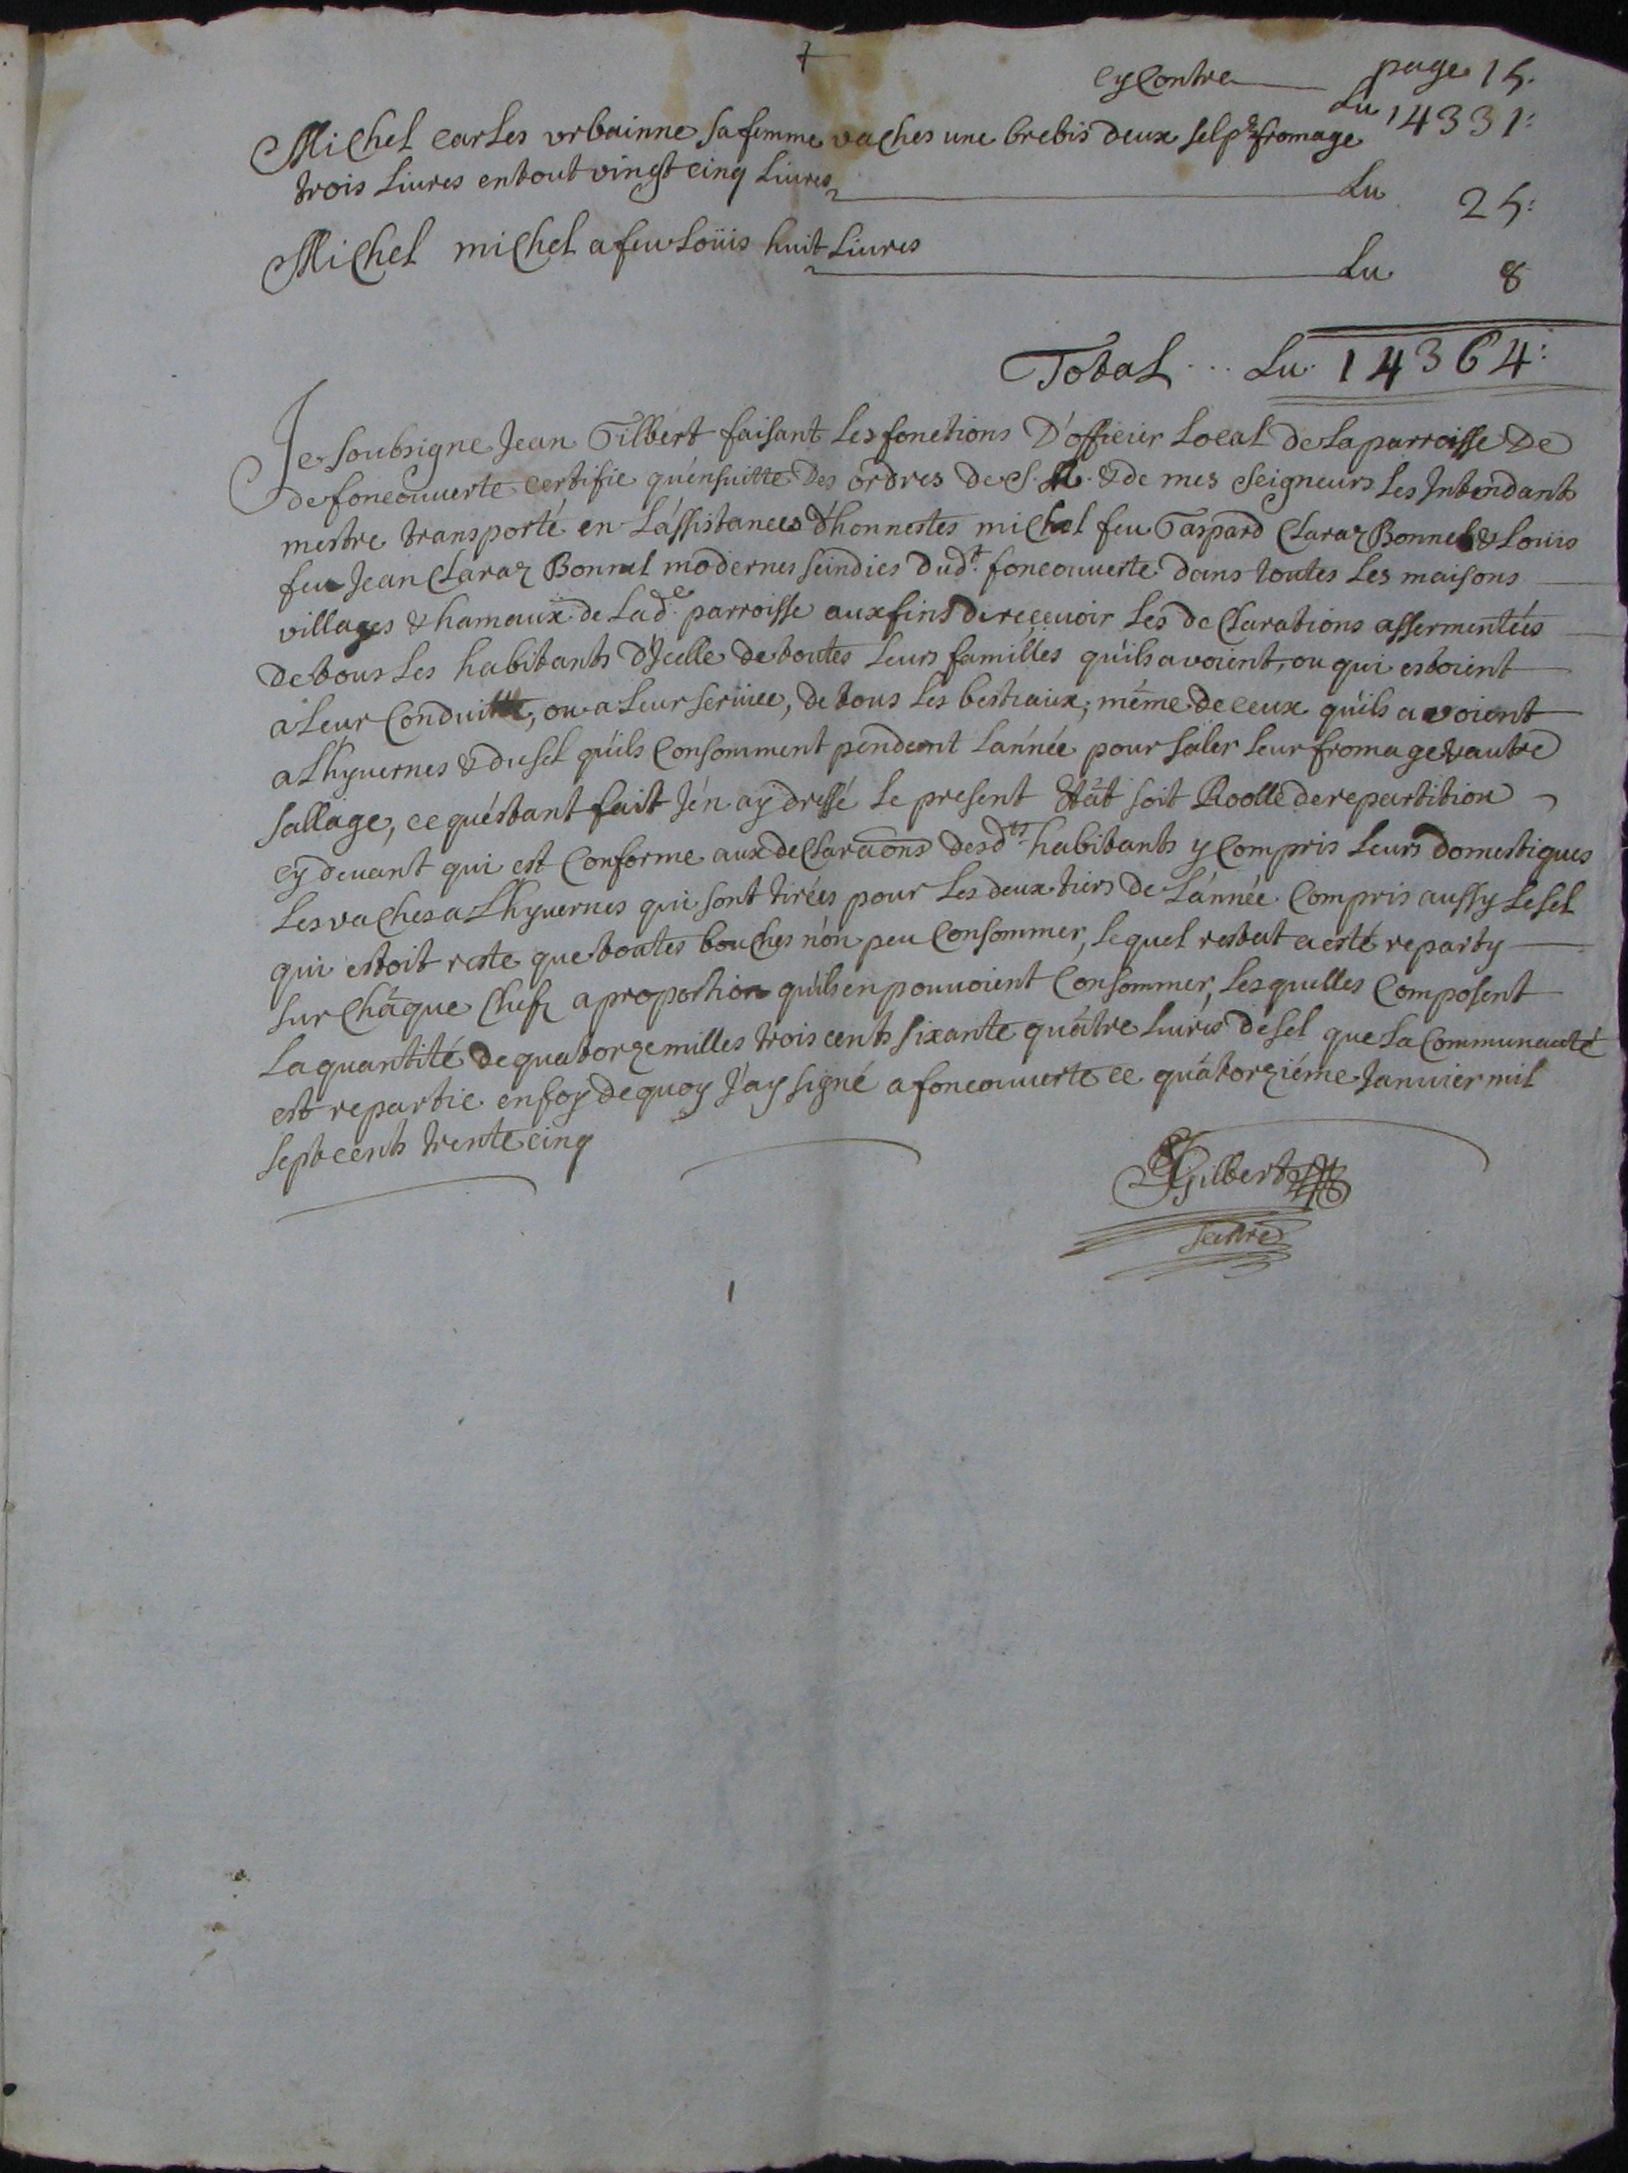 page 15.
Cy Contre Lu 14331:
Michel Carles urbainne sa femme vaches une brebis deux sel pr fromage
trois Liures en tout vingt cinq Liures Lu 25:
Michel michel a feu Loüis huit Liures Lu 8
Total ... Lu. 14364:
Je Soubsigne Jean Gilbert faisant Les fonctions D'officier Local de La parroisse De
de foncouuerte certifie qu'ensuitte Des ordres de S. M. & de mes Seigneurs Les Intendants
mestre transporté en L'assistances d'honnestes michel feu Gaspard Claraz Bonnel & Louis
feu Jean Claraz Bonnel modernes scindics dudt. foncouuerte dans toutes Les maisons
villages & hameaux de Lade. parroisse aux fins de recevoir Les de Clarations assermentées
de tous Les habitants d'Jcelle de toutes Leurs familles qu'ils avoient, ou qui estoient
a Leur Conduitte, ou a Leur seruice, de tous Les bestiaux, méme de ceux qu'ils avoient
a L'hyuernes & du sel qu'ils Consomment pendent L'année pour saler Leur fromage & autre
sallage, ce qu'estant fait J'en ay dressé Le present Etát soit Roolle de repartition
cy deuant qui est Conforme aux de Claraons desdts habitants y Compris Leurs domestiques
Les vaches a L'hyuernes qui sont tirées pour Les deux tiers de L'année Compris aussy Le sel
qui estoit reste que toutes bouches n'on peu Consommer, Lequel restat a esté reparty
sur Cháque Chefz a proportion qu'ils en pouuoient Consommer, Lesquelles Composent
La quantité de quatorze milles trois cents sixante quátre Liures de sel que La Communauté
est repartie en foy de quoy J'ay signé a foncouuerte ce quátorziéme Januier mil
sept cents trente cinq
JGilbert